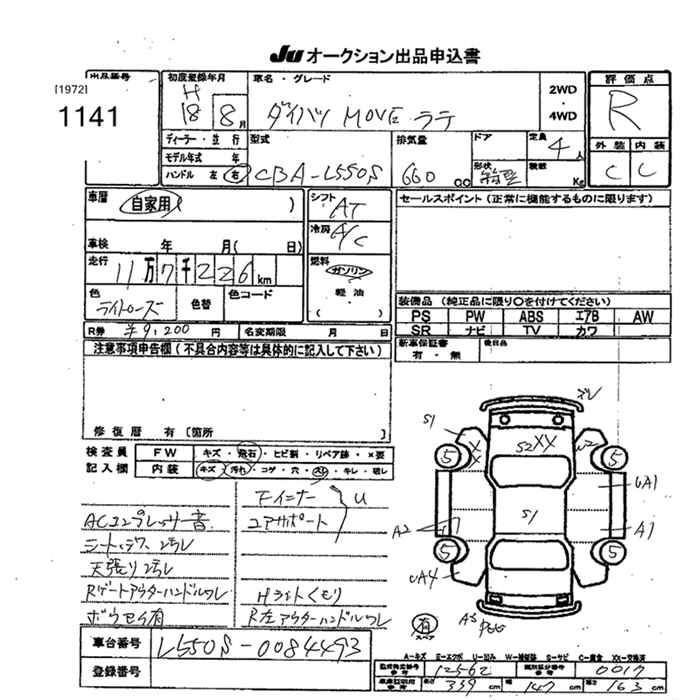 Ju オークション出品申込書
出品番号
[1972]
1141
初度登録年月
H
18 8月
車名・グレード
ダイハツ MOVE ラテ
2WD
・
4WD
評価点
R
外装 内装
C C
ディーラー・並行
モデル年式 年
ハンドル 左 右
型式
CBA-L550S
排気量
660 cc
ドア
形状 箱型
定員
4人
積数 Kg
車歴
自家用 )
車検 年 月( 日)
走行
11万7千226km
シフト AT
冷房 A/C
燃料
ガソリン
・
軽油
( )
色
ライトローズ
色替
色コード
R券 ¥9,200 円 名変期限 月 日
セールスポイント (正常に機能するものに限ります)
装備品 (純正品に限り○を付けてください)
PS PW ABS エアB AW
SR ナビ TV カワ
新車保証書
有・無
後日品
注意事項申告欄(不具合内容等は具体的に記入して下さい)
修復歴 有〔箇所 〕
検査員
記入欄
FW キズ・飛石・ヒビ割・リペア跡・×要
内装 キズ・汚れ・コゲ・穴・スレ・キレ・破レ
Fインナー
U
コアサポート
ACコンプレッサー音
シート、
天張り
Rゲートアウターハンドルワレ
Hライトくもり
ボウセイ有
R左アウターハンドルワレ
車台番号 L550S-0084493
登録番号
S1
XX
S2XX
W2
5
5
UA1
S1
A2
A1
5
5
UA4
有
スペア
A3
A-キズ E-エクボ U-凹み W-補修跡 S-サビ C-腐食 XX-交換済
型式指定番号 12562 類別区分番号 0017
長さ 339 cm 幅 147 cm 高さ 163 cm